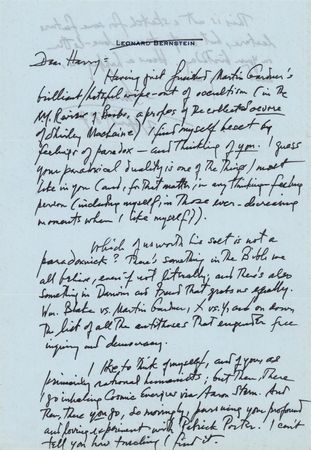 LEONARD BERNSTEIN
Dear Harry:
Having just finished Martin Gardner's
brilliant/hateful wipe-out of occultism (in the
N.Y. Review of Books, a propos of the collected oeuvre
of Shirley MacLaine) I find myself beset by
feelings of paradox — and thinking of you. I guess
your paradoxical duality is one of the things I most
like in you (and, for that matter, in any thinking-feeling
person (including myself, in those ever-decreasing
moments when I like myself)).
Which of us worth his salt is not a
paradoxnick? There's something in the Bible we
all believe, even if not literally, and there's also
something in Darwin and Freud that grabs us equally.
Wm. Blake vs. Martin Gardner, X vs. Y, and on down
the list of all the antitheses that engender free
inquiry and democracy.
I like to think of myself, and of you, as
primarily rational humanists; but then, there
I go inhaling Cosmic Energies via Aaron Stern. And
then, there you go, so movingly, pursuing your profound
and loving experiment with Patrick Porter. I can't
tell you how touching I find it.